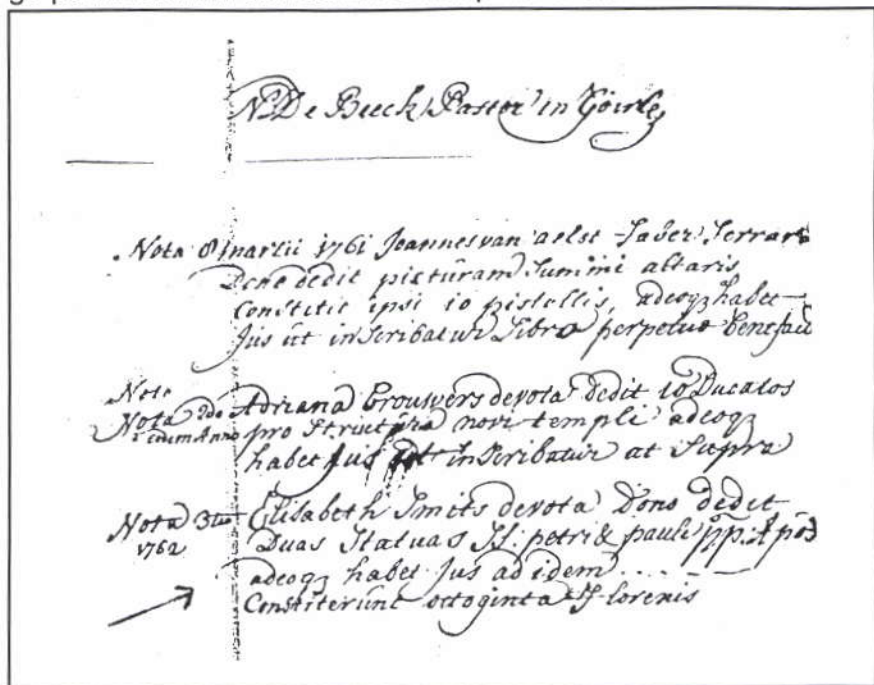 N. De Beeck Pastor in Goirle
Nota 8 martii 1761 Joannes van aelst Faber Ferrar
Dono dedit picturam Summi altaris
Constitit ipsi 10 pistollis, adeoq habet
Jus ut inscribatur Libro perpetuo benefact
Nota
Nota 2do Adriana Brouwers devota dedit 10 Ducatos
eodem Anno pro Structura novi templi adeoq
habet Jus ut inscribatur ut Supra
Nota 3tio Elisabeth Smits devota Dono dedit
1762 Duas Statuas SS. petri & pauli
adeoq habet Jus ad idem .... -
Constiterunt octoginta florenis